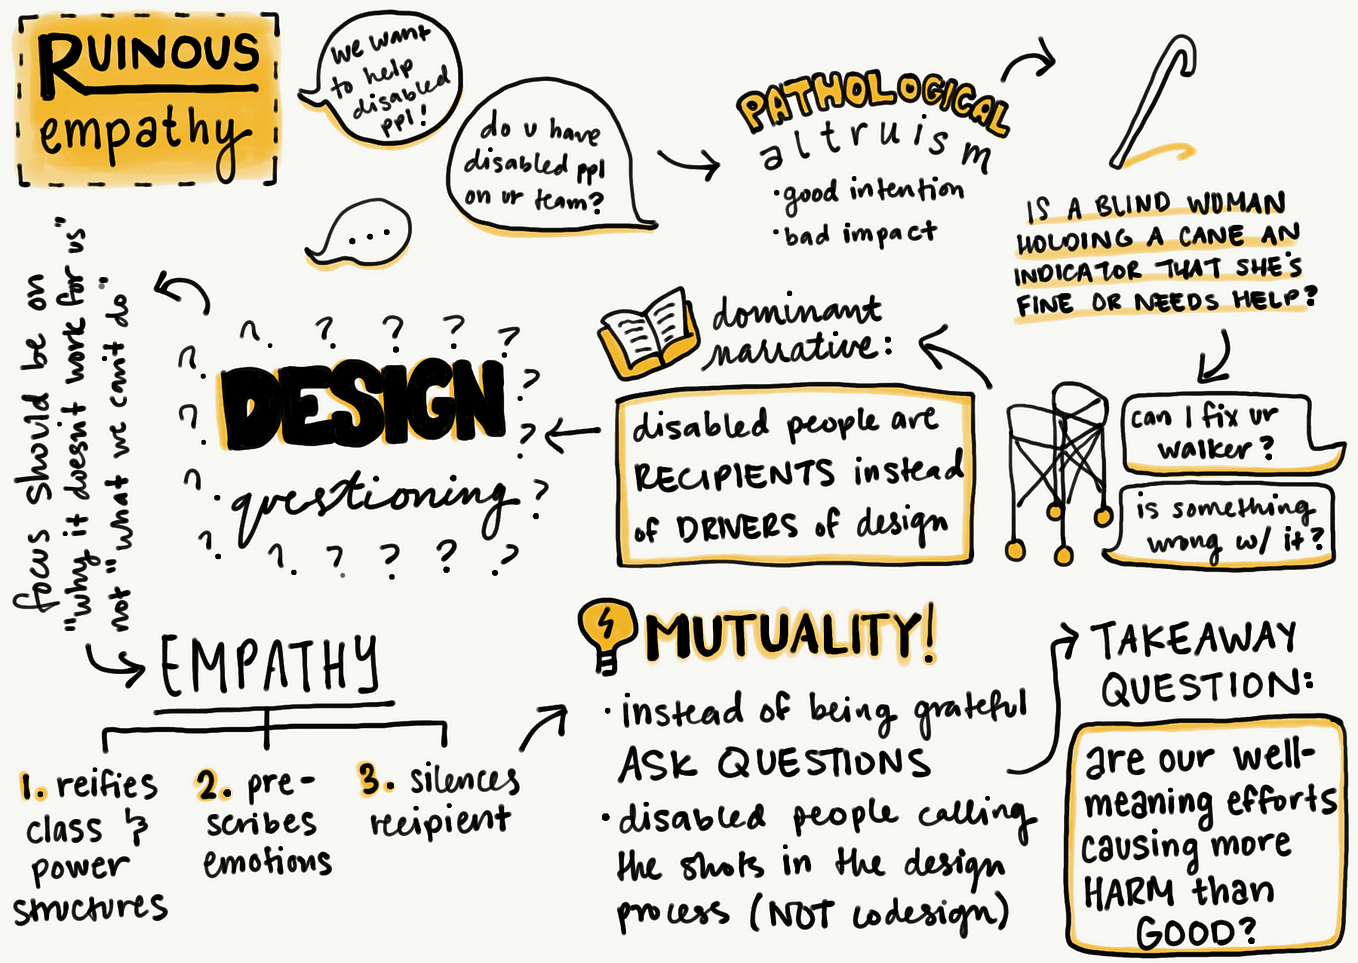 RUINOUS
empathy
we want
to help
disabled
ppl!
do u have
disabled ppl
on ur team?
...
PATHOLOGICAL
altruism
• good intention
• bad impact
IS A BLIND WOMAN
HOLDING A CANE AN
INDICATOR THAT SHE'S
FINE OR NEEDS HELP?
can I fix ur
walker?
is something
wrong w/ it?
dominant
narrative:
disabled people are
RECIPIENTS instead
of DRIVERS of design
? ? ? ? ?
DESIGN
questioning
? ? ? ? ?
focus should be on
"why it doesn't work for us"
not "what we can't do"
EMPATHY
1. reifies
class &
power
structures
2. pre-
scribes
emotions
3. silences
recipient
MUTUALITY!
• instead of being grateful
ASK QUESTIONS
• disabled people calling
the shots in the design
process (NOT codesign)
TAKEAWAY
QUESTION:
are our well-
meaning efforts
causing more
HARM than
GOOD?